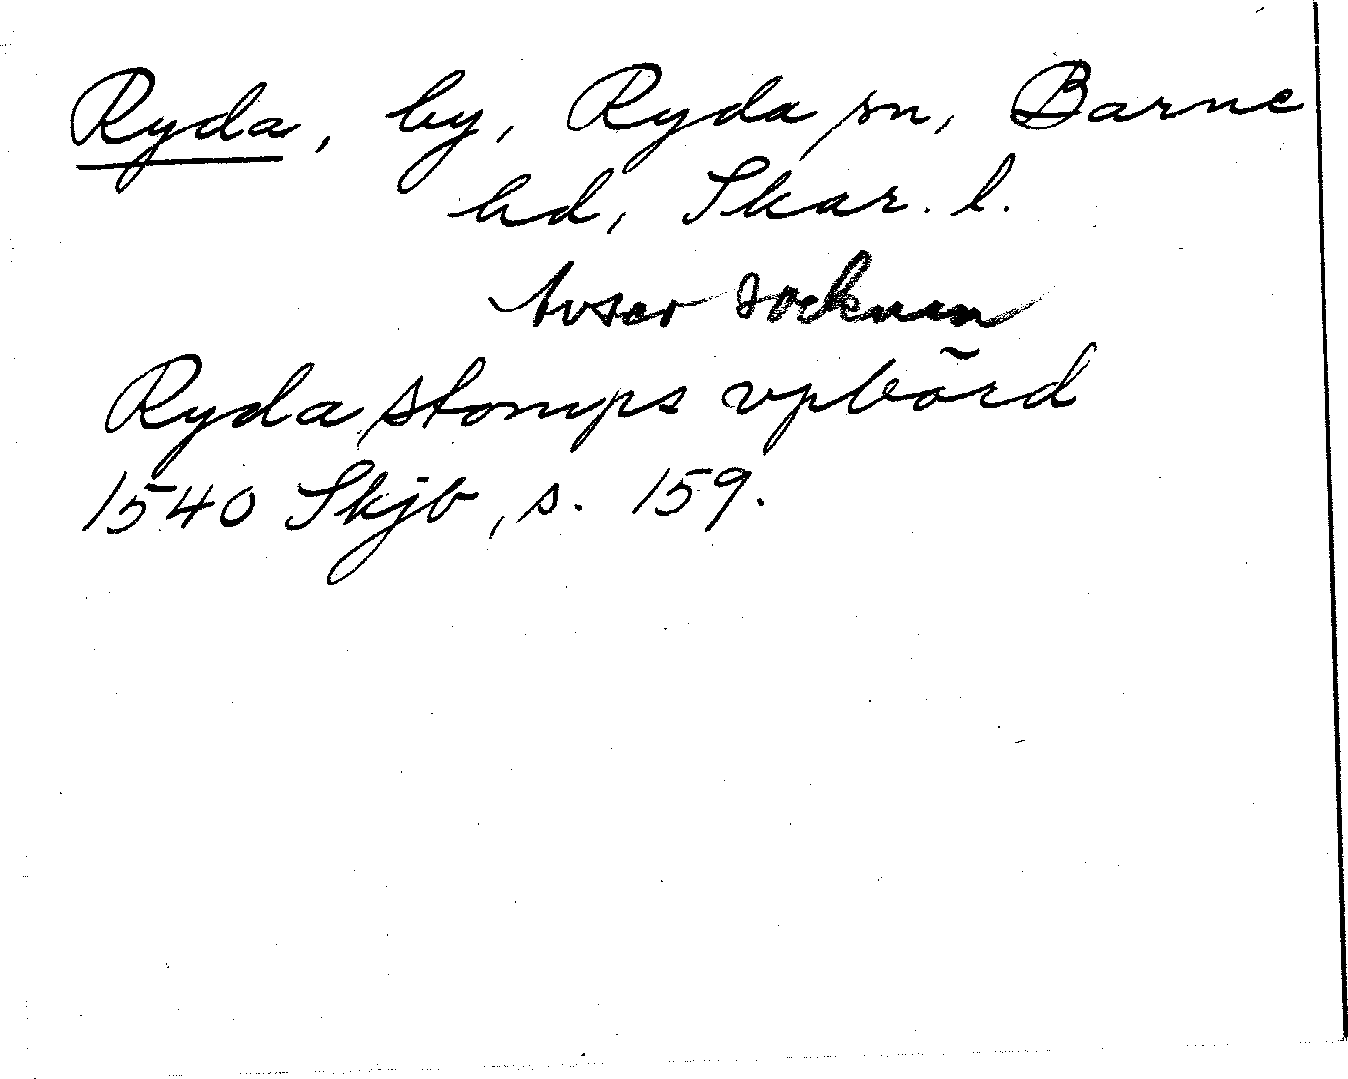 Ryda, by, Ryda sn, Barne
hd, Skar. l.
Avser socknen
Ryda stomps vpbörd
1540 Skjb, s. 159.